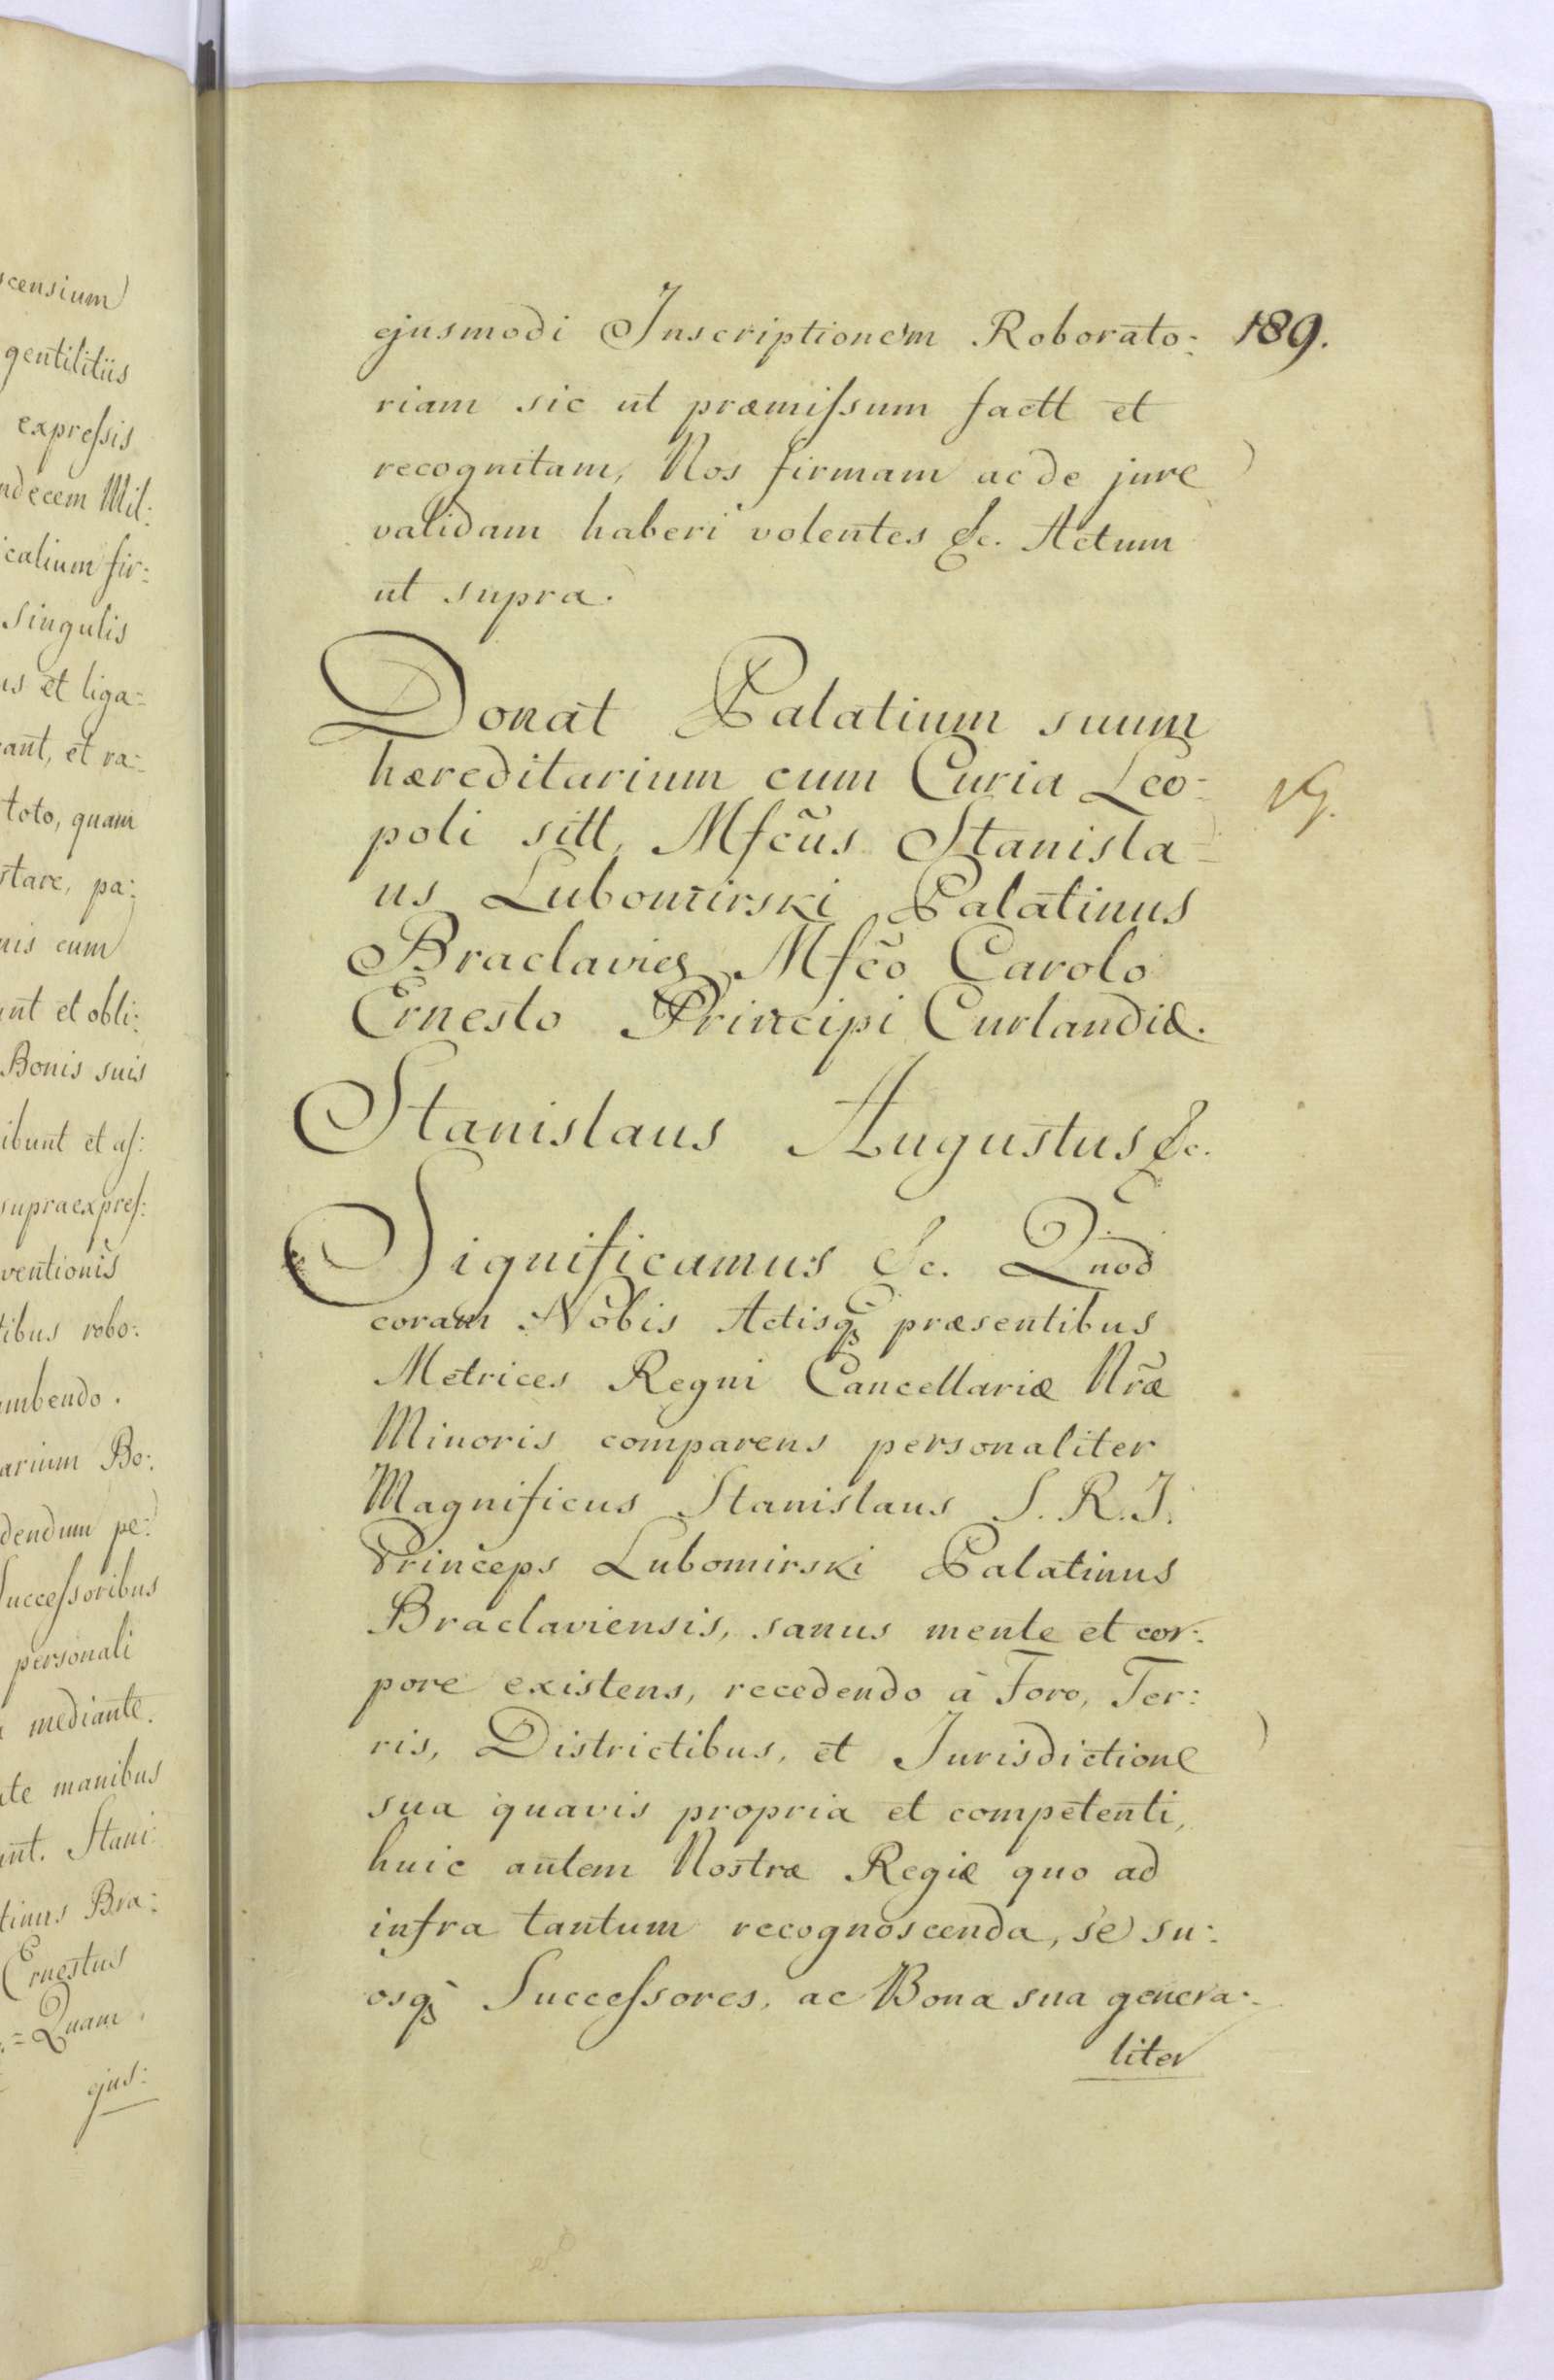 scensium
gentilitiis
expressis
ndecem Mil:
icalium fir:
singulis
us et liga=
ant, et ra=
toto, quam
stare, pa:
nis cum
unt et obli:
Bonis suis
ibunt et as:
supraexpres:
ventionis
tibus robo:
umbendo.
arium Bo:
dendum pe:
Successoribus
personali
mediante.
te manibus
unt. Stani:
tinus Bra:
Ernestus
= Quam
ejus:
ejusmodi Inscriptionem Roborato: 189.
riam sic ut præmissum factt et
recognitam, Nos firmam ac de jure
validam haberi volentes &c. Actum
ut supra.
Donat Palatium suum
hæreditarium cum Curia Leo=
poli sitt, Mfcus Stanisla=
us Lubomirski Palatinus
Braclavies Mfco Carolo
Ernesto Principi Curlandiæ.
Stanislaus Augustus &c.
Significamus &c. Quod
coram Nobis Actisq præsentibus
Metrices Regni Cancellariæ Nræ
Minoris comparens personaliter
Magnificus Stanislaus S. R. I.
Princeps Lubomirski Palatinus
Braclaviensis, sanus mente et cor:
pore existens, recedendo à Foro, Ter:
ris, Districtibus, et Jurisdictione
sua quavis propria et competenti,
huic autem Nostræ Regiæ quo ad
infra tantum recognoscenda, se su:
osq Successores, ac Bona sua genera:
liter